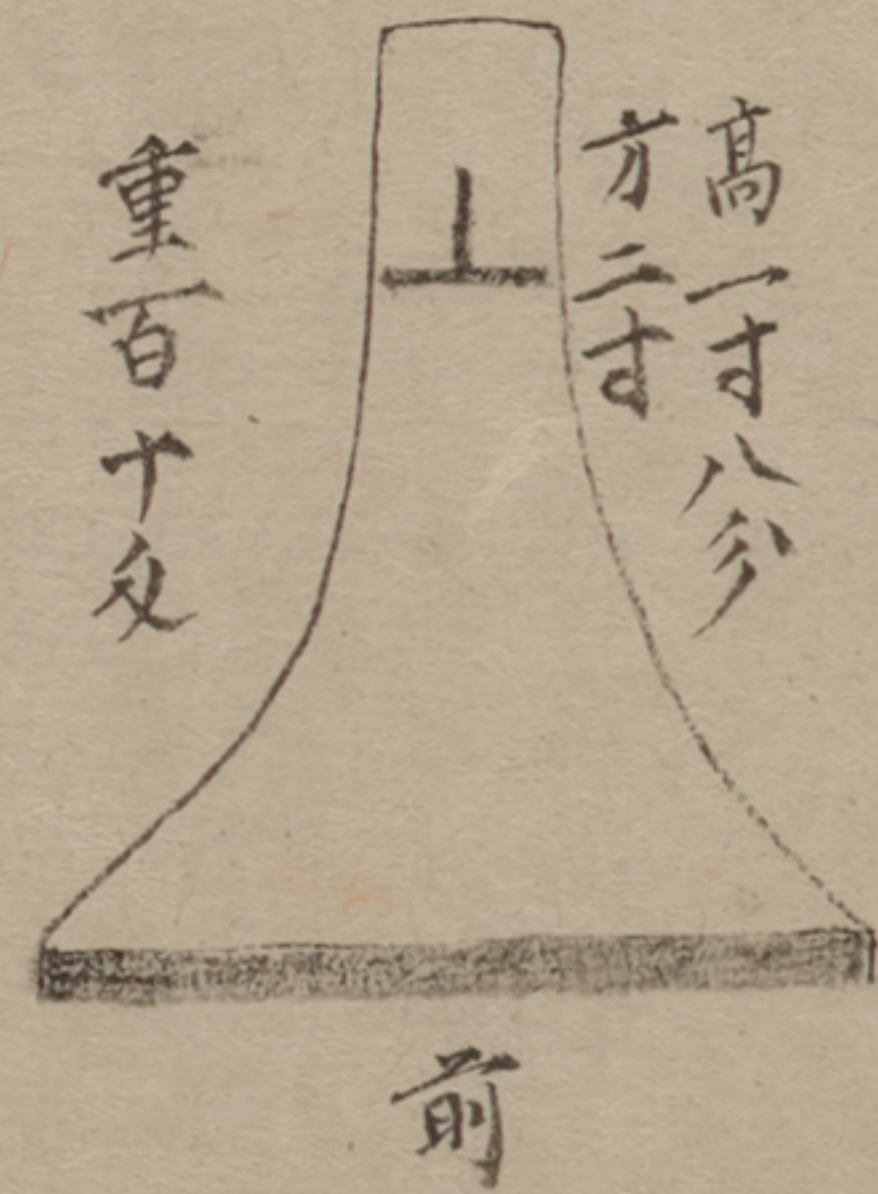 高一寸八分
方二寸
上
重百十匁
前